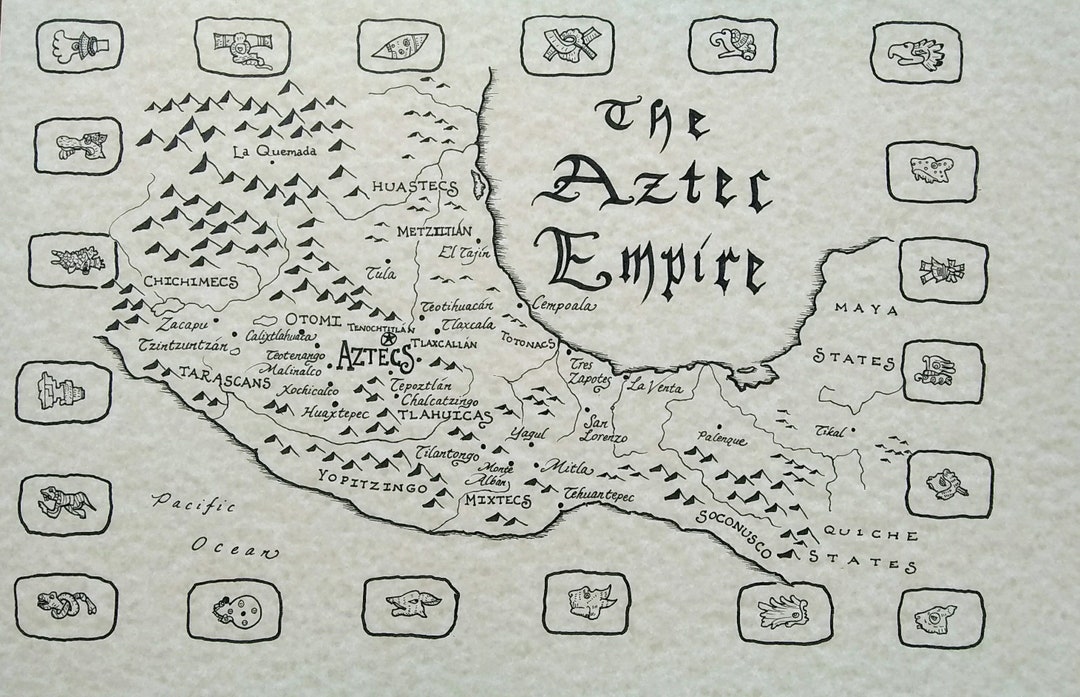 The
Aztec
Empire
La Quemada
HUASTECS
METZTITLÁN
El Tajín
Tula
CHICHIMECS
Teotihuacán
Cempoala
MAYA
STATES
Zacapu
OTOMI
TENOCHTITLÁN
Tlaxcala
Calixtlahuaca
TOTONACS
Tzintzuntzán
Teotenango
AZTECS
TLAXCALLÁN
Malinalco
TARASCANS
Xochicalco
Tepoztlán
Tres
Zapotes
La Venta
Chalcatzingo
Huaxtepec
TLAHUICAS
San
Lorenzo
Yagul
Palenque
Tikal
Tilantongo
Monte
Albán
Mitla
YOPITZINGO
MIXTECS
Tehuantepec
Pacific
Ocean
SOCONUSCO
QUICHE
STATES